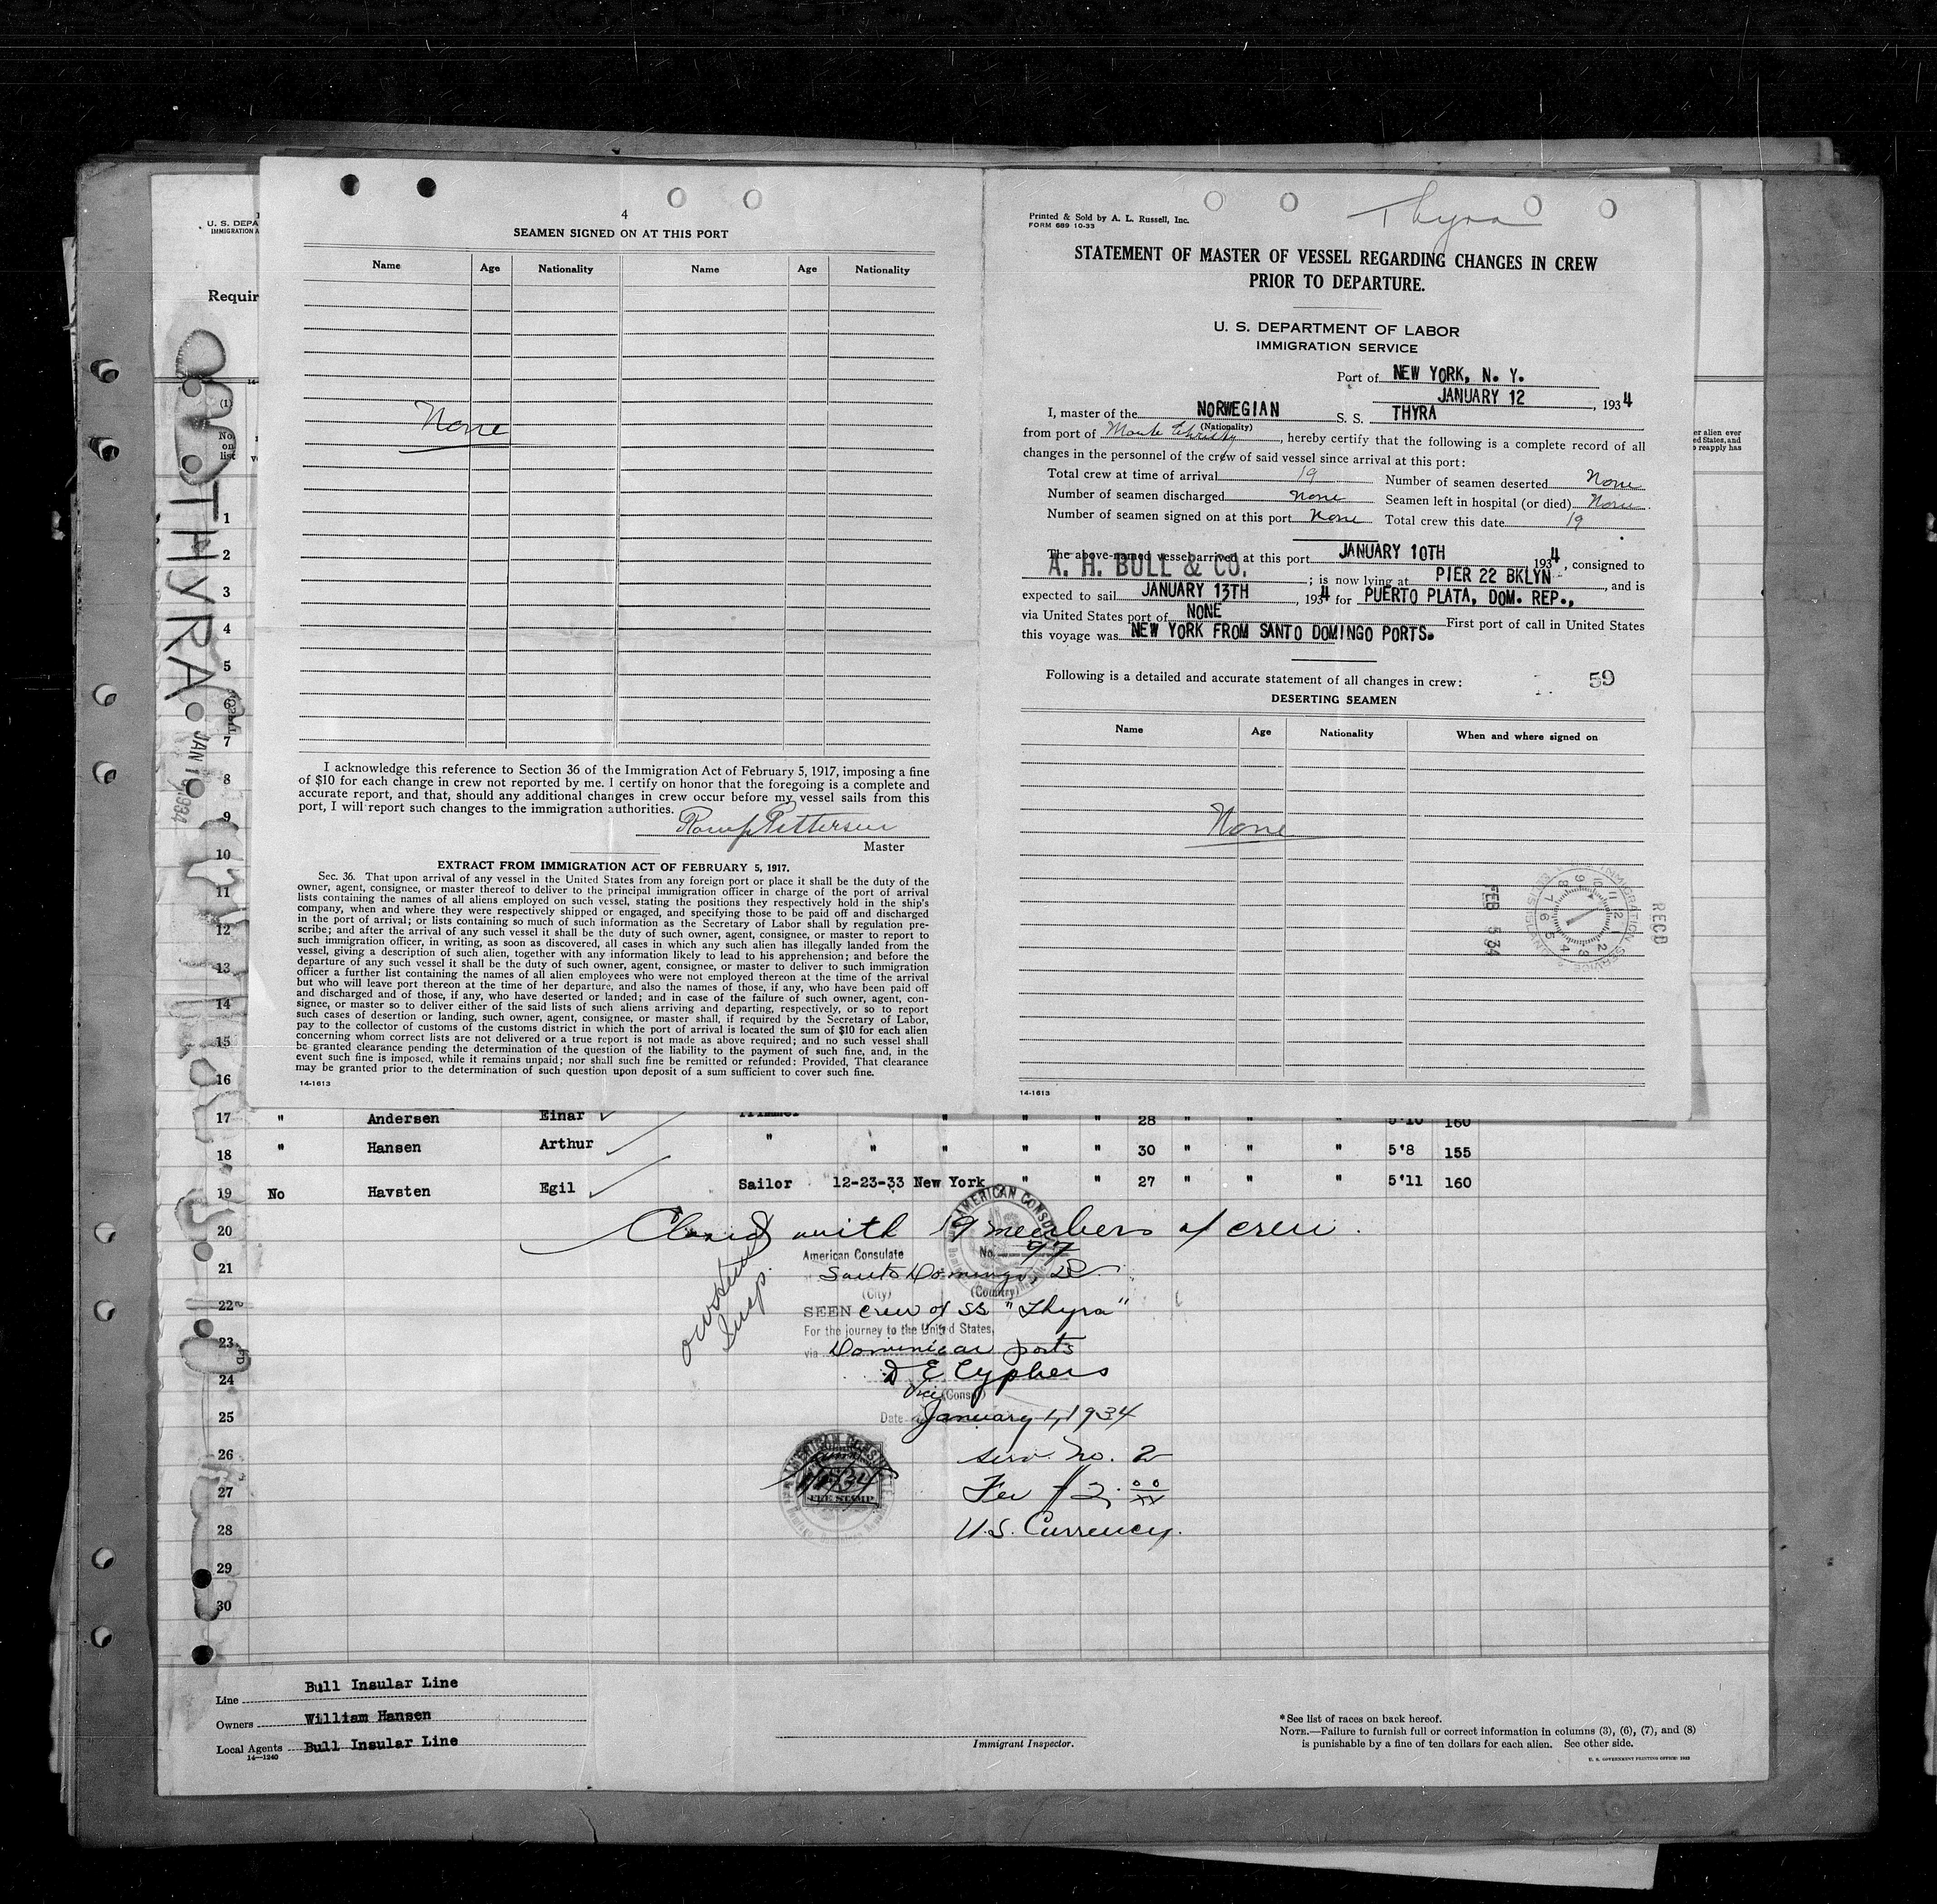 4
SEAMEN SIGNED ON AT THIS PORT
Name Age Nationality Name Age Nationality
None
I acknowledge this reference to Section 36 of the Immigration Act of February 5, 1917, imposing a fine
of $10 for each change in crew not reported by me. I certify on honor that the foregoing is a complete and
accurate report, and that, should any additional changes in crew occur before my vessel sails from this
port, I will report such changes to the immigration authorities.
Pettersen
Master
EXTRACT FROM IMMIGRATION ACT OF FEBRUARY 5, 1917.
Sec. 36. That upon arrival of any vessel in the United States from any foreign port or place it shall be the duty of the
owner, agent, consignee, or master thereof to deliver to the principal immigration officer in charge of the port of arrival
lists containing the names of all aliens employed on such vessel, stating the positions they respectively hold in the ship's
company, when and where they were respectively shipped or engaged, and specifying those to be paid off and discharged
in the port of arrival; or lists containing so much of such information as the Secretary of Labor shall by regulation pre-
scribe; and after the arrival of any such vessel it shall be the duty of such owner, agent, consignee, or master to report to
such immigration officer, in writing, as soon as discovered, all cases in which any such alien has illegally landed from the
vessel, giving a description of such alien, together with any information likely to lead to his apprehension; and before the
departure of any such vessel it shall be the duty of such owner, agent, consignee, or master to deliver to such immigration
officer a further list containing the names of all alien employees who were not employed thereon at the time of the arrival
but who will leave port thereon at the time of her departure, and also the names of those, if any, who have been paid off
and discharged and of those, if any, who have deserted or landed; and in case of the failure of such owner, agent, con-
signee, or master so to deliver either of the said lists of such aliens arriving and departing, respectively, or so to report
such cases of desertion or landing, such owner, agent, consignee, or master shall, if required by the Secretary of Labor,
pay to the collector of customs of the customs district in which the port of arrival is located the sum of $10 for each alien
concerning whom correct lists are not delivered or a true report is not made as above required; and no such vessel shall
be granted clearance pending the determination of the question of the liability to the payment of such fine, and, in the
event such fine is imposed, while it remains unpaid; nor shall such fine be remitted or refunded: Provided, That clearance
may be granted prior to the determination of such question upon deposit of a sum sufficient to cover such fine.
14-1613
Printed & Sold by A. L. Russell, Inc.
FORM 689 10-33
Thyra
STATEMENT OF MASTER OF VESSEL REGARDING CHANGES IN CREW
PRIOR TO DEPARTURE.
U. S. DEPARTMENT OF LABOR
IMMIGRATION SERVICE
Port of NEW YORK, N. Y.
JANUARY 12, 1934
I, master of the NORWEGIAN S. S. THYRA
(Nationality)
from port of Monte Christy, hereby certify that the following is a complete record of all
changes in the personnel of the crew of said vessel since arrival at this port:
Total crew at time of arrival 19 Number of seamen deserted None
Number of seamen discharged none Seamen left in hospital (or died) None
Number of seamen signed on at this port None Total crew this date 19
The above-named vessel arrived at this port JANUARY 10TH 1934, consigned to
A. H. BULL & CO. ; is now lying at PIER 22 BKLYN, and is
expected to sail JANUARY 13TH, 1934 for PUERTO PLATA, DOM. REP.,
via United States port of NONE First port of call in United States
this voyage was NEW YORK FROM SANTO DOMINGO PORTS.
Following is a detailed and accurate statement of all changes in crew:
59
DESERTING SEAMEN
Name Age Nationality When and where signed on
None
RECD
FEB 5 34
IMMIGRATION SERVICE
14-1613
U. S. DEPA
IMMIGRATION A
Requir
(1)
No.
on
list
er alien ever
ed States, and
o reapply has
THYRA
JAN 1 1934
1
2
3
4
5
6
7
8
9
10
11
12
13
14
15
16
17 " Andersen Einar Trimmer " " " 28 " " " 5'10 160
18 " Hansen Arthur " " " " " 30 " " " 5'8 155
19 No Havsten Egil Sailor 12-23-33 New York " " 27 " " " 5'11 160
20
Closed with 19 members of crew.
AMERICAN CONSUL
American Consulate No. 97
21
Santo Domingo, D.R.
(City) (Country)
22
SEEN crew of SS "Thyra"
For the journey to the United States,
23
via Dominican ports
24
D E Cyphers
Vice (Consul)
25
Date January 4, 1934
26
serv. no. 2
27
Fee $2.00/xx
AMERICAN CONSUL
FEE STAMP
28
U.S. Currency.
29
30
Line Bull Insular Line
Owners William Hansen
Local Agents Bull Insular Line
14-1240
Immigrant Inspector.
* See list of races on back hereof.
NOTE.—Failure to furnish full or correct information in columns (3), (6), (7), and (8)
is punishable by a fine of ten dollars for each alien. See other side.